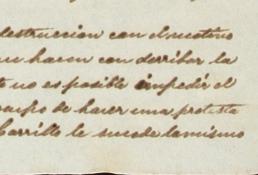 destruccion con el motivo
hacen con derribar la
no es posible impedir el
de hacer una protesta
Carrillo le sucede lo mismo